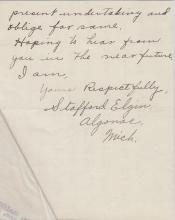 present undertaking and
oblige for same.
Hoping to hear from
you in the near future,
I am,
Yours Respectfully,
Stafford Elgin,
Algonac,
Mich.